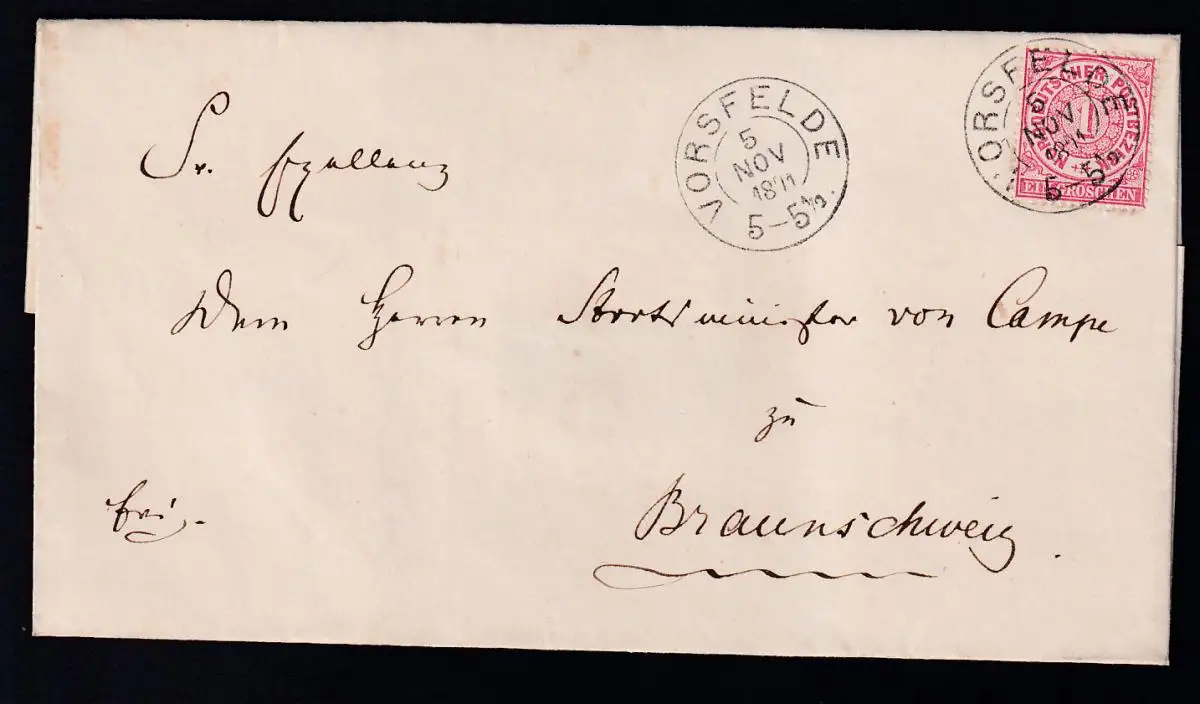 VORSFELDE
5
NOV
1871
5–5½.
VORSFELDE
5
NOV
1871
5–5½.
NORDDEUTSCHER POSTBEZIRK
1
EIN GROSCHEN
Sr. Excellenz
Dem Herren Staatsminister von Campe
zu
Braunschweig.